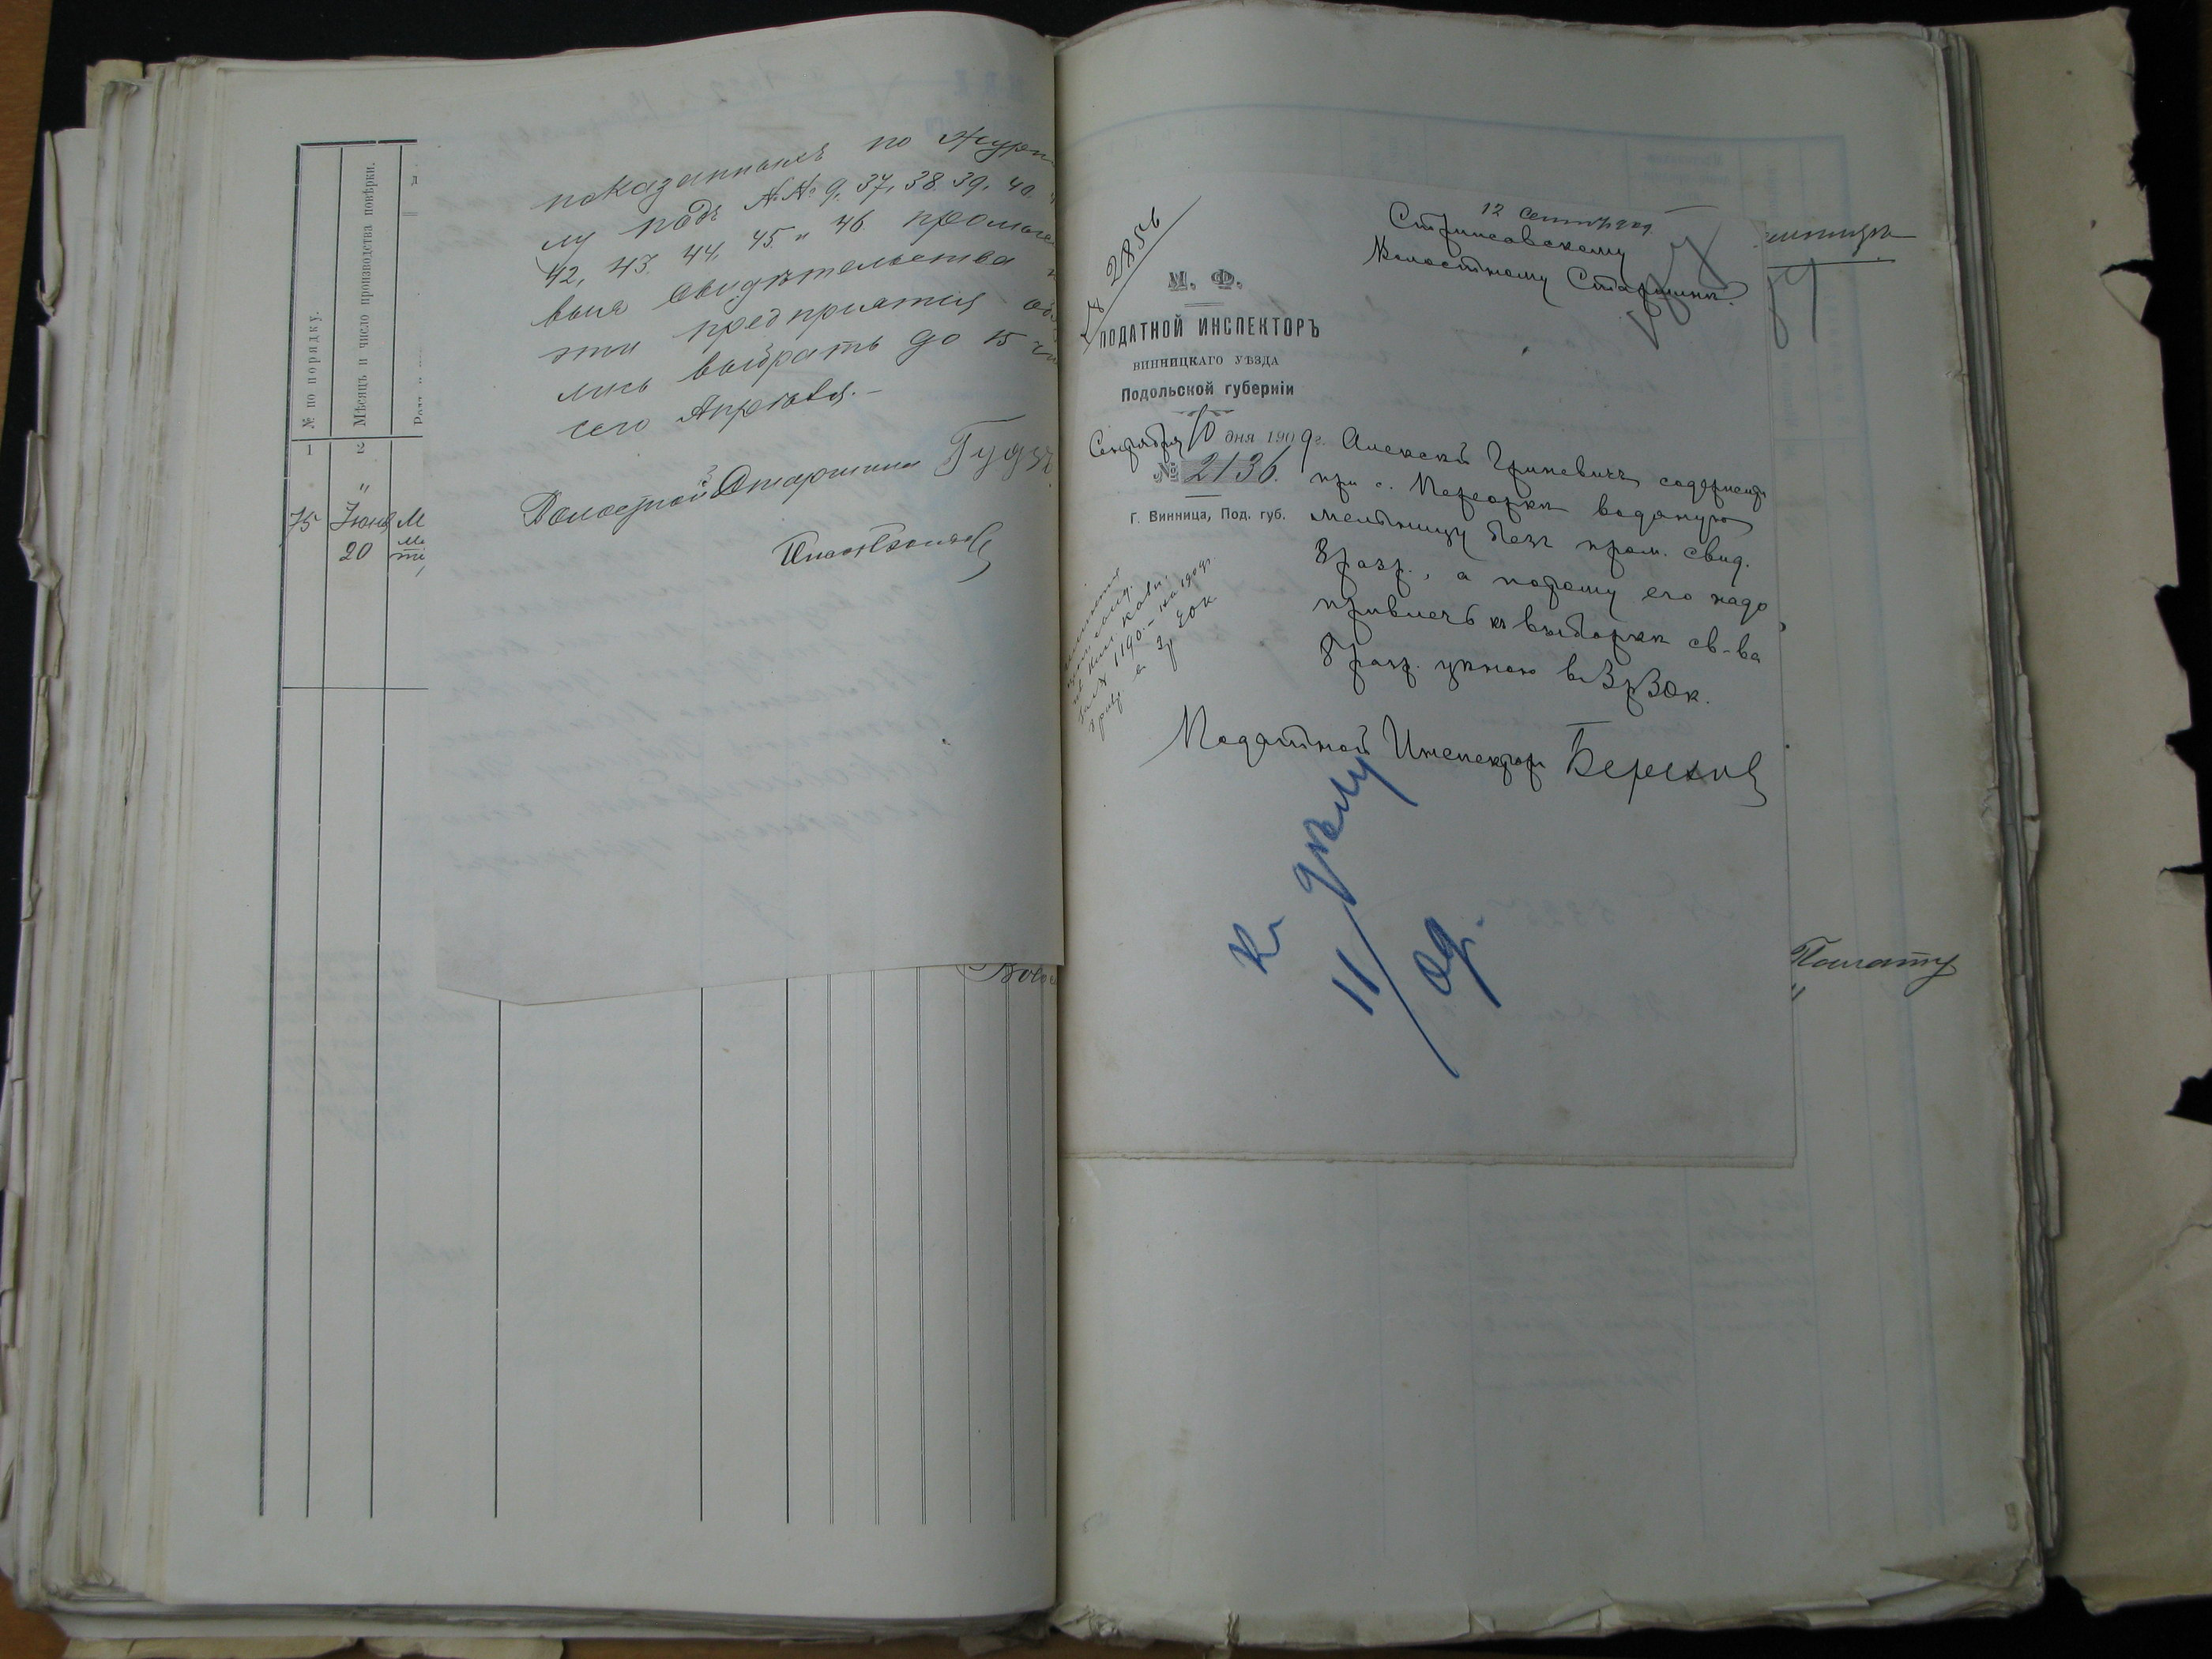 № по порядку.
Мѣсяцъ и число производства повѣрки.
1
2
"
75
Іюня
20
показанныхъ по Журна
лу подъ №№ 9, 37, 38. 39, 40.
42, 43. 44, 45 и 46 промысло
выя свидѣтельства
эти предприятія обя
лись выбрать до 15 чи
сего Апрѣля.-
Волостной Старшина Гудзь
12 Сентября 1909
Стрижавскому
Волостному Старшинѣ.
2856
М. Ф.
ПОДАТНОЙ ИНСПЕКТОРЪ
ВИННИЦКАГО УѢЗДА
Подольской губерніи
Сентября 10 дня 1909 г.
№ 2136.
Г. Винница, Под. губ.
Алексѣй Гриневичъ содержитъ
при с. Переоркѣ водяную
мельницу безъ пром. свид.
8 разр., а потому его надо
привлечь къ выборкѣ св-ва
8 разр. цѣною въ 3р 30к.
Податной Инспекторъ
Къ дѣлу
11/
Палату